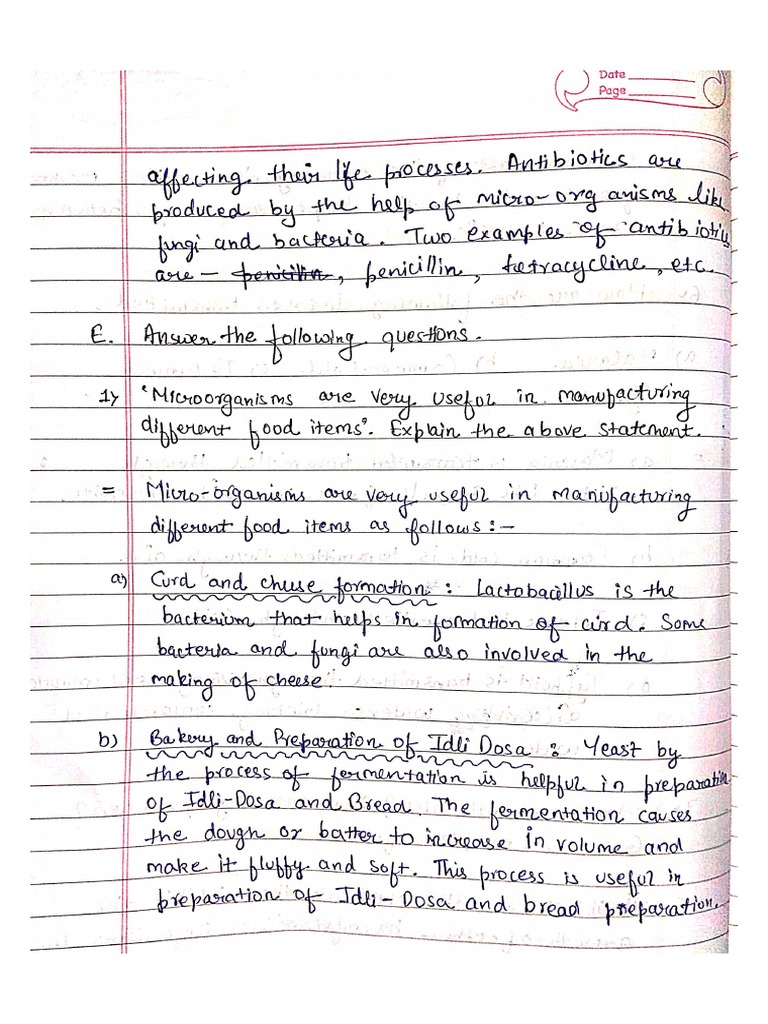 Date
Page
affecting their life processes. Antibiotics are
produced by the help of micro-organisms like
fungi and bacteria. Two examples of antibiotics
are - penicillin, penicillin, tetracycline, etc.
E. Answer the following questions.
1) 'Microorganisms are very useful in manufacturing
different food items'. Explain the above statement.
= Micro-organisms are very useful in manufacturing
different food items as follows:-
a) Curd and cheese formation : Lactobacillus is the
bacterium that helps in formation of curd. Some
bacteria and fungi are also involved in the
making of cheese.
b) Bakery and Preparation of Idli Dosa : Yeast by
the process of fermentation is helpful in preparation
of Idli-Dosa and Bread. The fermentation causes
the dough or batter to increase in volume and
make it fluffy and soft. This process is useful in
preparation of Idli-Dosa and bread preparation.